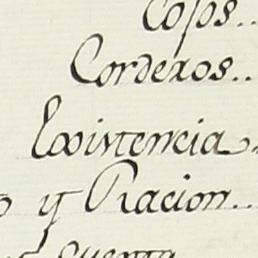 Cojos..
Corderos..
Existencia.
o y Racion..
cuenta